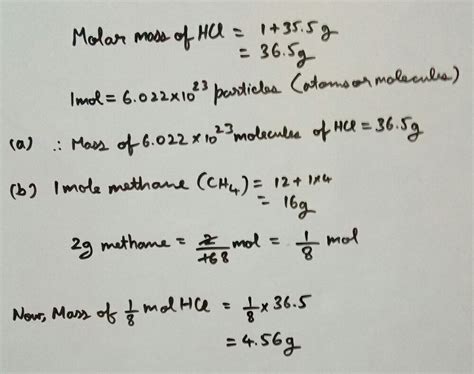 Molar mass of HCl = 1+35.5g
= 36.5g
1mol = 6.022×10²³ particles (atoms or molecules)
(a) ∴ Mass of 6.022×10²³ molecules of HCl = 36.5g
(b) 1 mole methane (CH₄) = 12+1×4
= 16g
2g methane = 2/16 8 mol = 1/8 mol
Now, Mass of 1/8 mol HCl = 1/8 × 36.5
= 4.56g